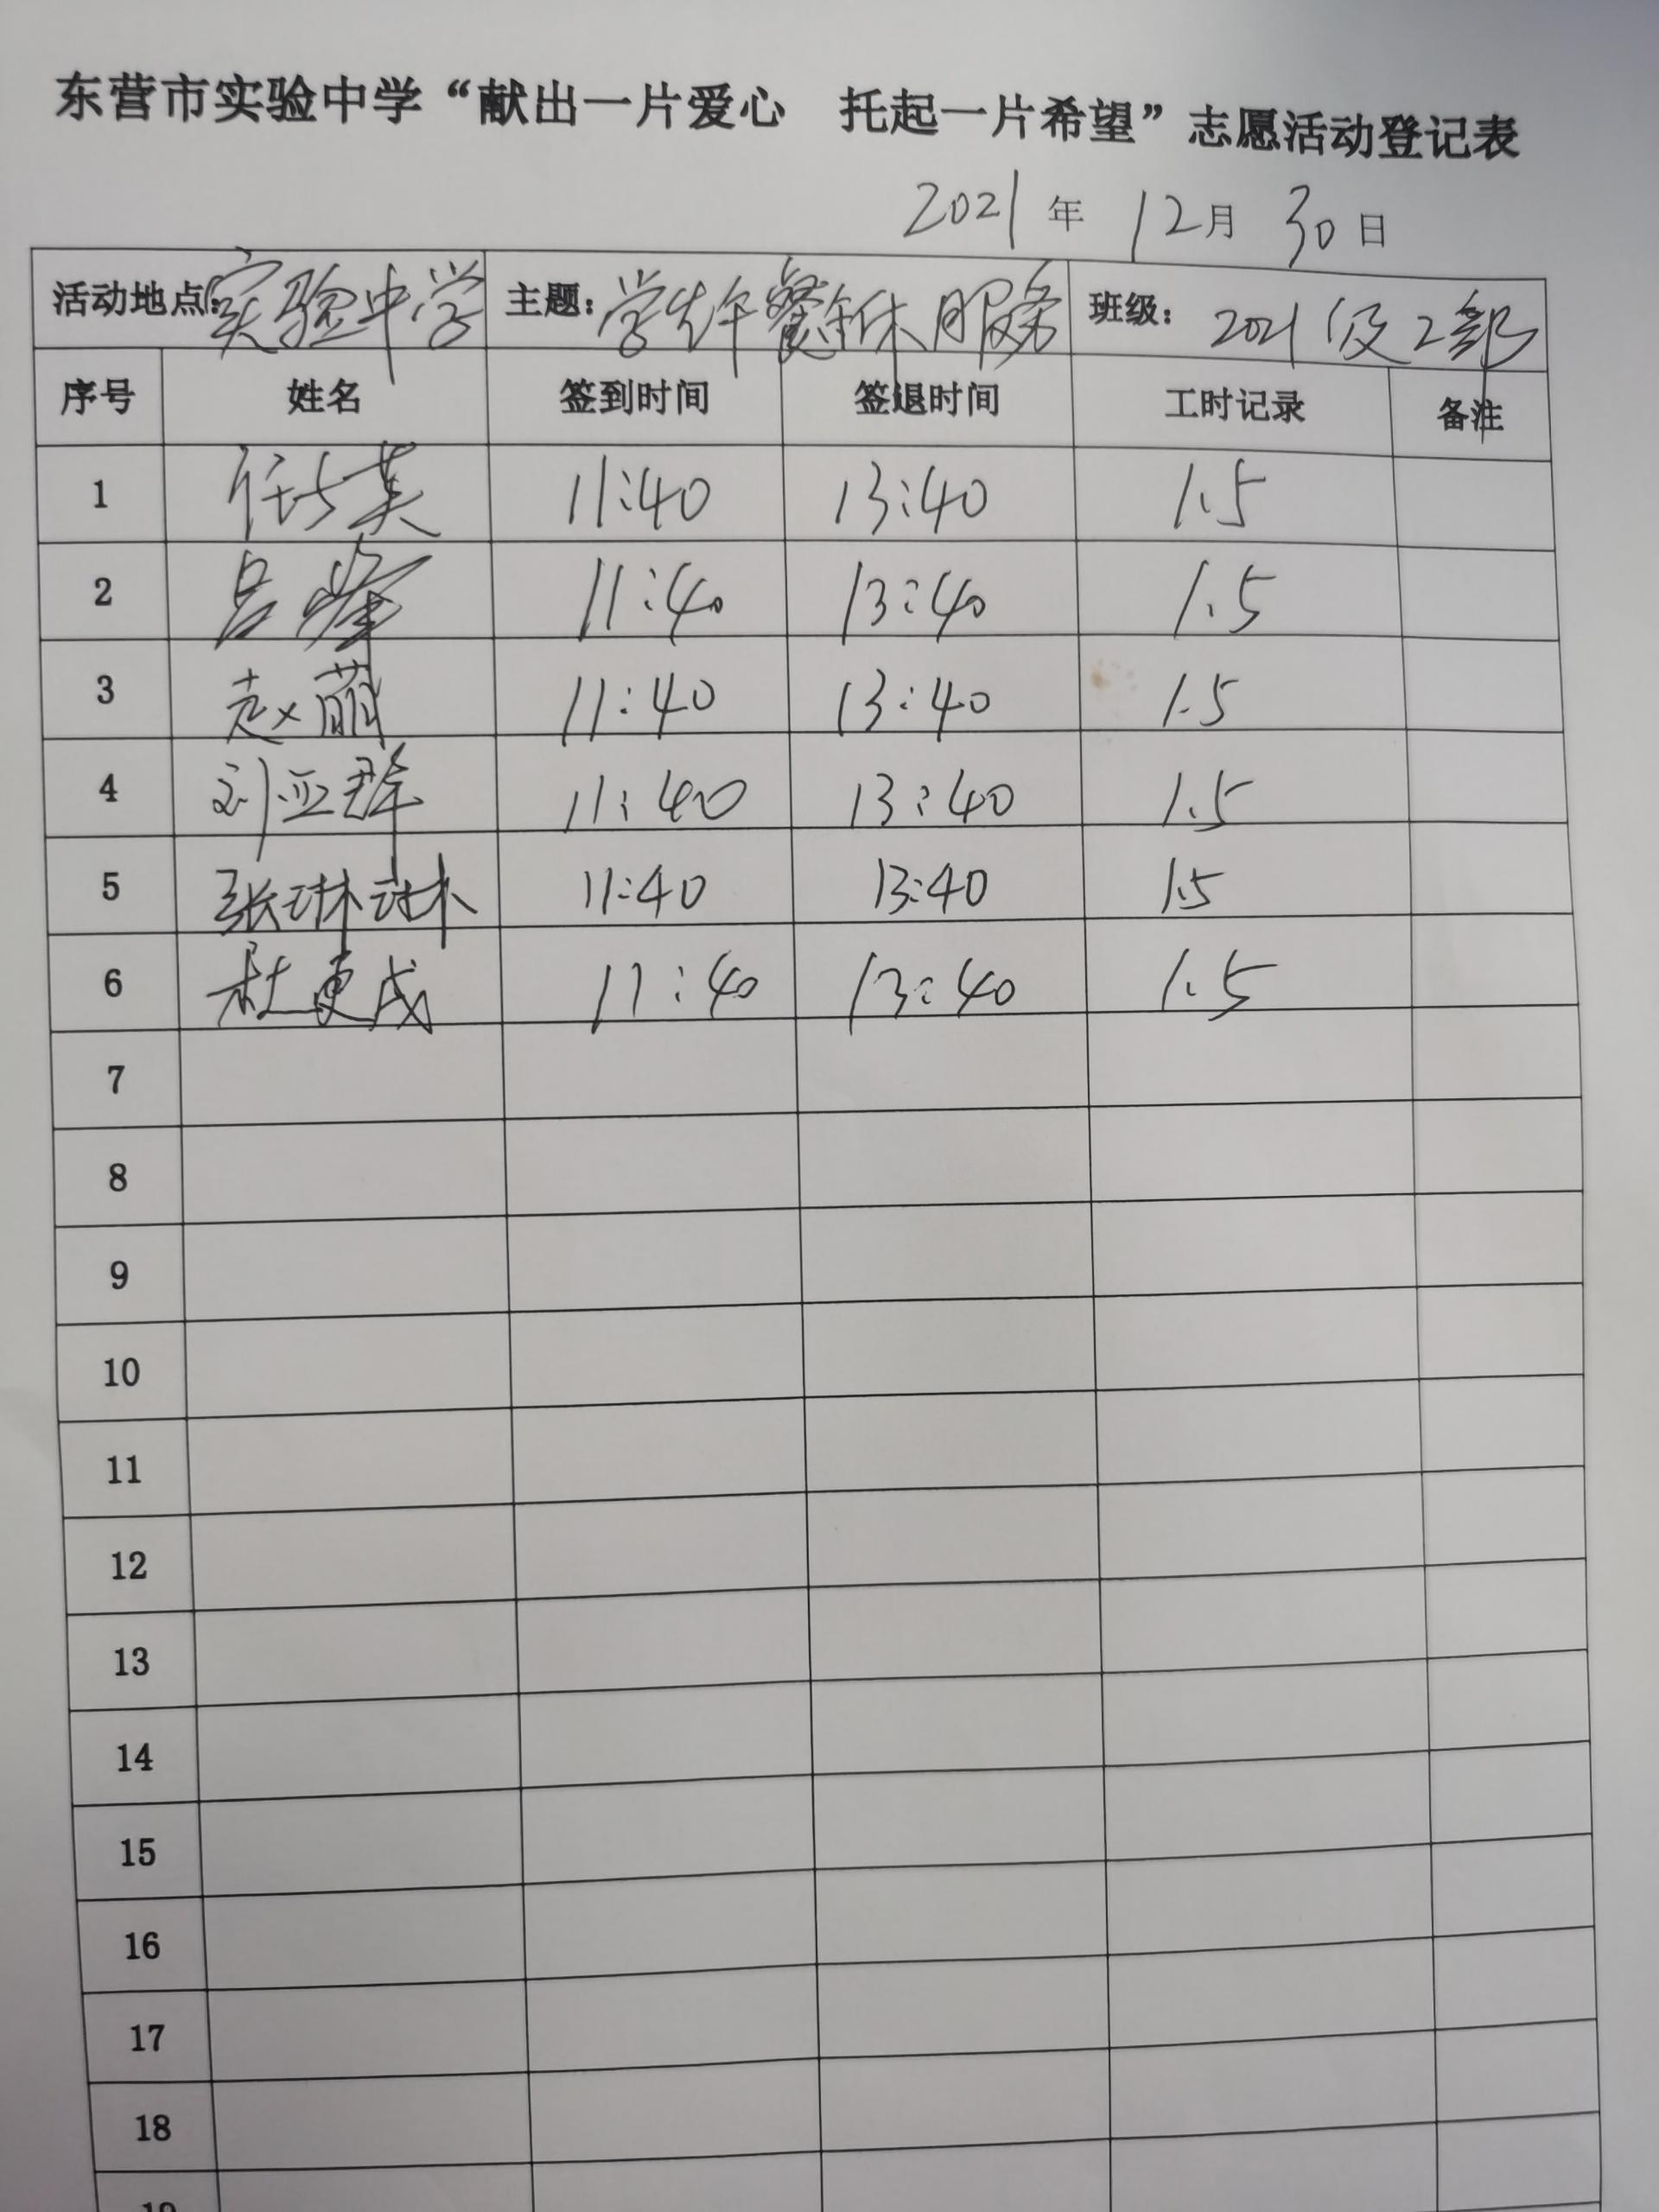 东营市实验中学“献出一片爱心 托起一片希望”志愿活动登记表
2021年12月30日
活动地点:实验中学 主题:学生午餐午休服务 班级:2021级2部
序号 姓名 签到时间 签退时间 工时记录 备注
1 任 英 11:40 13:40 1.5
2 吕峰 11:40 13:40 1.5
3 赵萌 11:40 13:40 1.5
4 刘亚群 11:40 13:40 1.5
5 张琳琳 11:40 13:40 1.5
6 杜更成 11:40 13:40 1.5
7
8
9
10
11
12
13
14
15
16
17
18
19